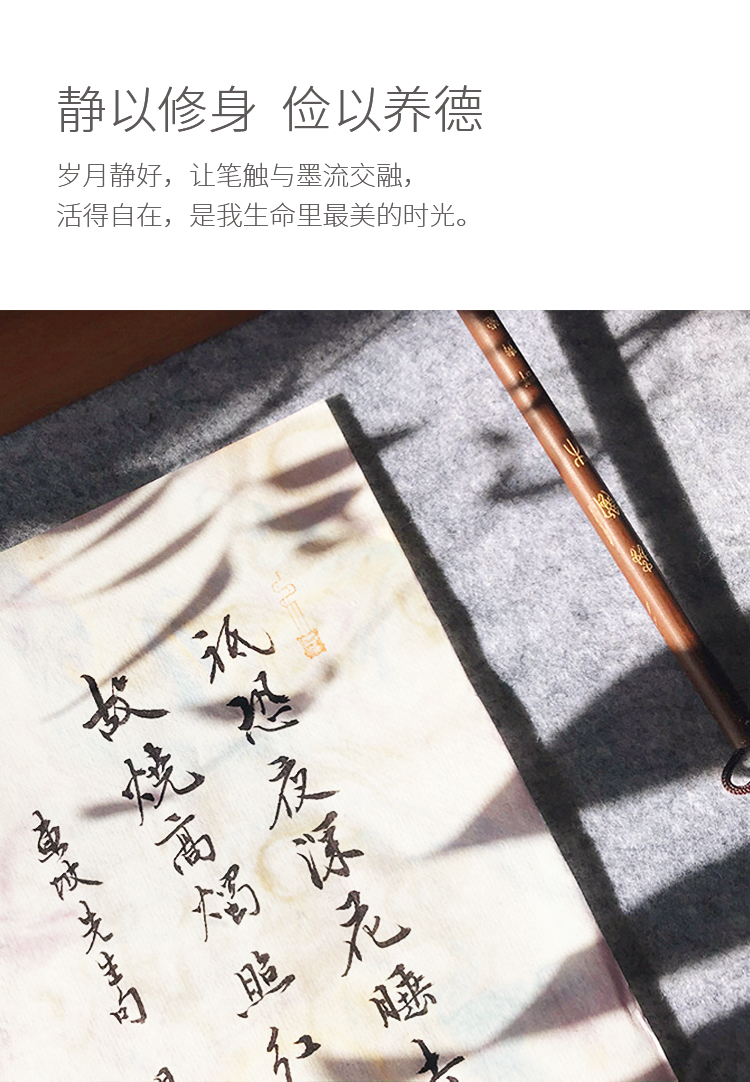 静以修身 俭以养德
岁月静好，让笔触与墨流交融，
活得自在，是我生命里最美的时光。
祇恐夜深花睡去
故燒高燭照紅
東坡先生句